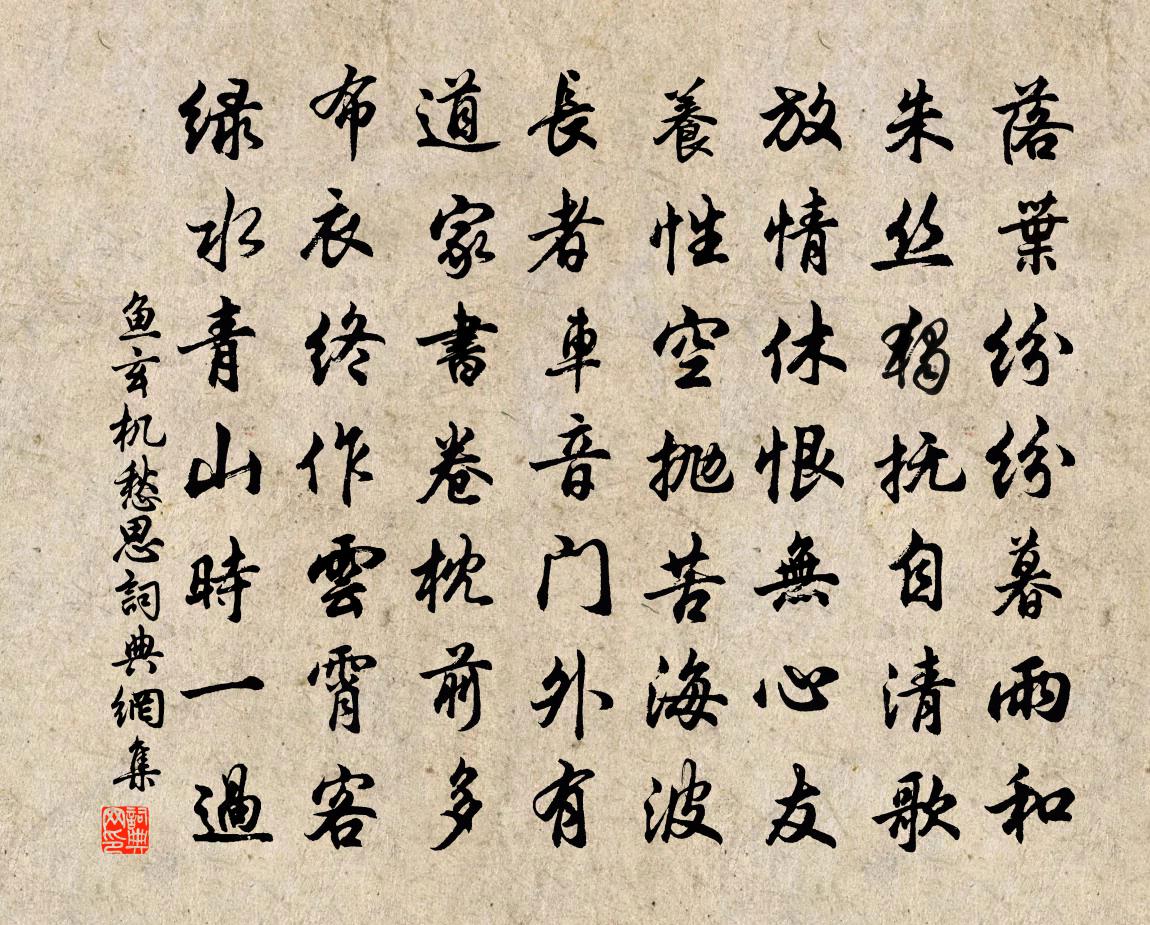 落葉紛紛暮雨和
朱丝獨抚自清歌
放情休恨無心友
養性空抛苦海波
長者車音门外有
道家書卷枕前多
布衣终作雲霄客
緑水青山時一過
鱼玄机愁思詞典網集
詞典
网印